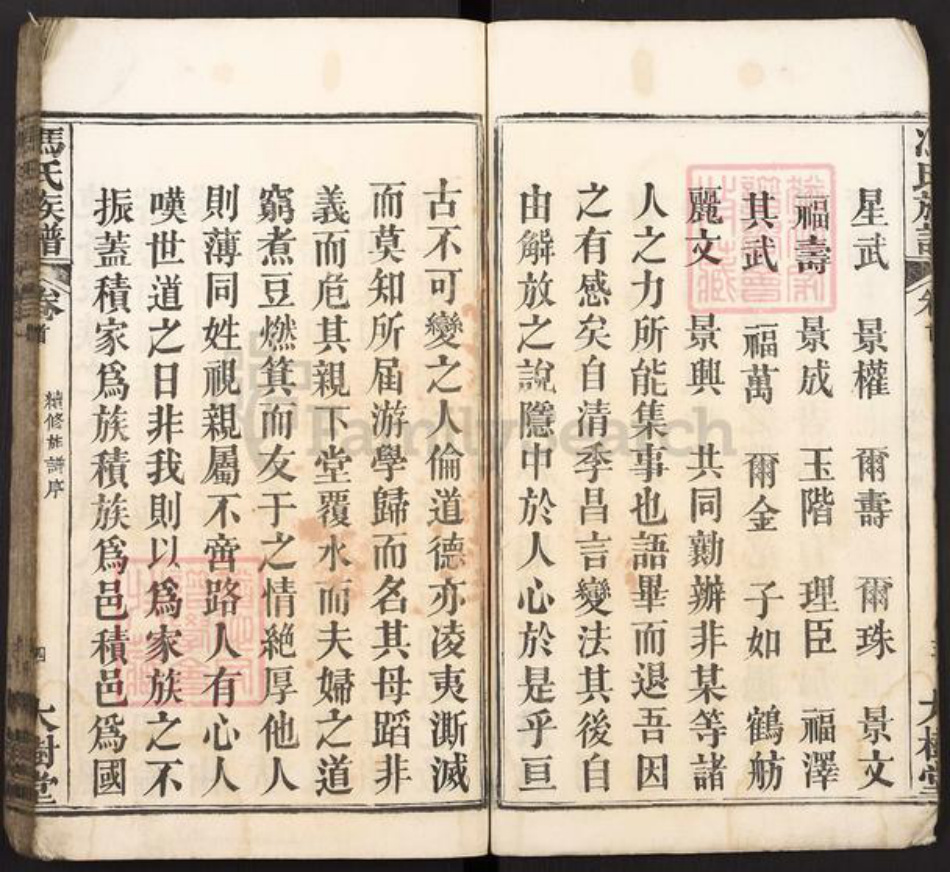 星武　景權　爾壽　爾珠　景文
福壽　景成　玉階　理臣　福澤
其武　福萬　爾金　子如　鶴舫
麗文　景興　共同勷辦非某等諸
人之力所能集事也語畢而退吾因
之有感矣自清季昌言變法其後自
由解放之說隱中於人心於是乎亘
古不可變之人倫道德亦凌夷澌滅
而莫知所届游學歸而名其母蹈非
義而危其親下堂覆水而夫婦之道
窮煮豆燃箕而友于之情絕厚他人
則薄同姓視親屬不啻路人有心人
嘆世道之日非我則以爲家族之不
振蓋積家爲族積族爲邑積邑爲國
馮氏族譜　卷首　續修族譜序　四　大樹堂
FamilySearch